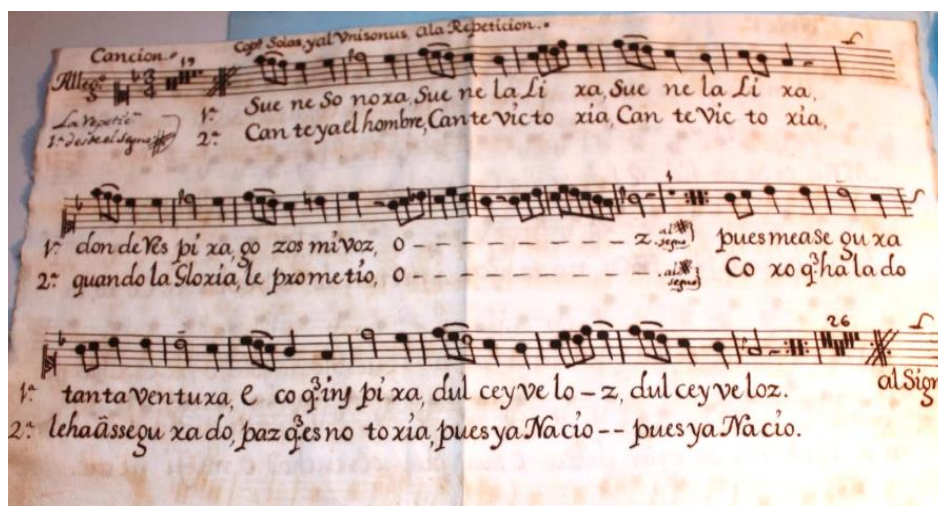 Cancion. Cops. Solas, y al Vnisonus, a la Repeticion.
Allego. 3 19
1ª Sue ne So noxa, Sue ne la Li xa, Sue ne la Li xa,
La repetin.
1ª desde el segno
2ª Can te ya el hombre, Can te Victo xia, Can te Vic to xia,
1ª don de Res pi xa, go zos mi voz, o - - - - - - - - - z. al segno pues me ase gu xa
2ª quando la Gloxia, le pxometio, o - - - - - - - - - al segno Co xo q.e ha la do
26
1ª tanta ventuxa, e co q.e ins pi xa, dul ce y ve lo - z, dul ce y veloz. al Sign
2ª le ha âssegu xa do, paz q.e es no toxia, pues ya Nacio - - pues ya Nacio.